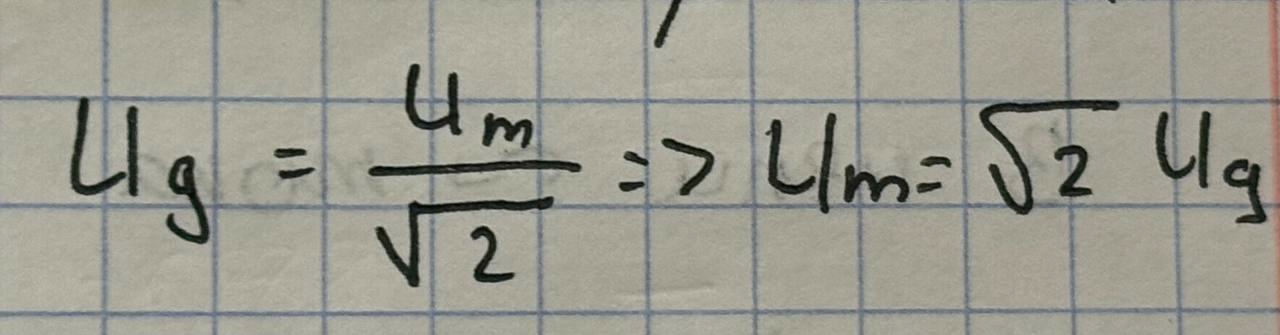 Ug = Um/√2 => Um = √2 Ug